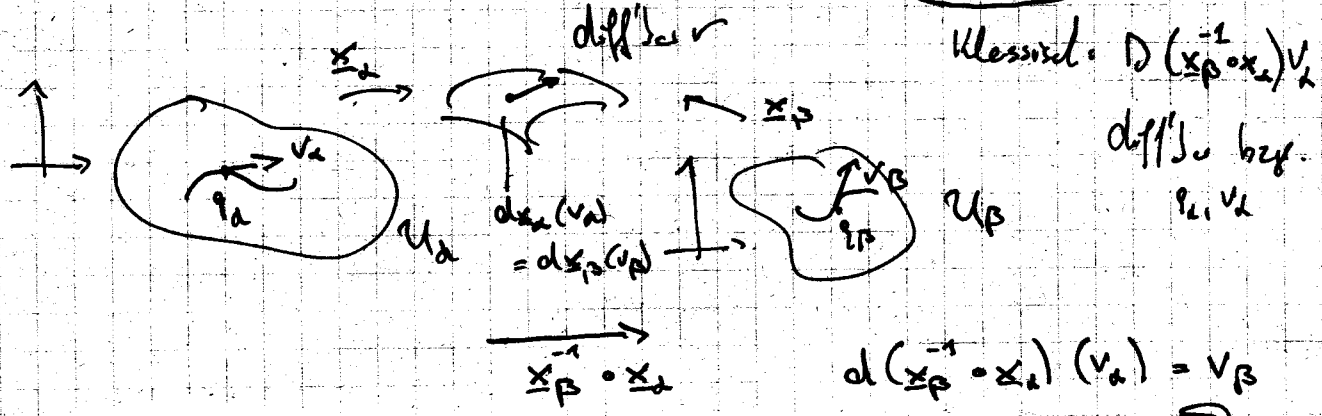 diff'bar ✓
Klassisch: D(x_β^{-1} ∘ x_α) v_α
x_α
x_β
diff'bar bzgl.
q_α, v_α
v_α
q_α
U_α
dx_α(v_α)
= dx_β(v_β)
v_β
q_β
U_β
x_β^{-1} ∘ x_α
d(x_β^{-1} ∘ x_α)(v_α) = v_β